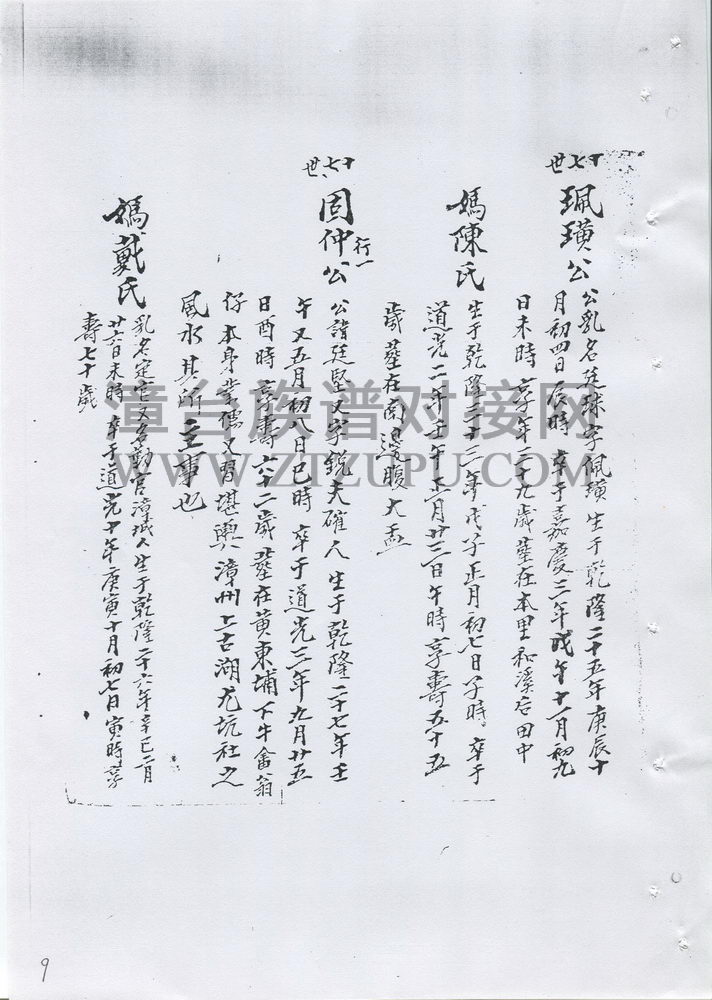 十七世
珮璜公
公乳名廷球字佩璜生于乾隆二十五年庚辰十
月初四日辰時卒于嘉慶三年戊午十一月初九
日未時享年三十九歲葬在本里和溪后田中
媽陳氏
生于乾隆三十三年戊子正月初七日子時卒于
道光二年壬午正月廿三日午時享壽五十五
歲葬在南邊腹大盂
十七世
固仲公
行一
公諱廷堅又字銳夫確人生于乾隆二十七年壬
午又五月初八日巳時卒于道光三年九月廿五
日酉時享壽六十二歲葬在黄東埔下牛畬翁
仔本身業儒又習堪輿漳州上古湖尤坑社之
風水其所主事也
媽戴氏
乳名定官又名勤官漳城人生于乾隆二十六年辛巳二月
廿六日未時卒于道光十年庚寅十月初七日寅時享
壽七十歲
漳台族谱对接网
WWW.ZTZUPU.COM
9